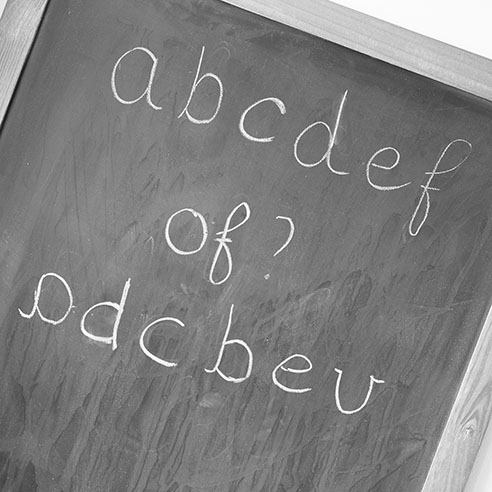 abcdef
of?
adcbev